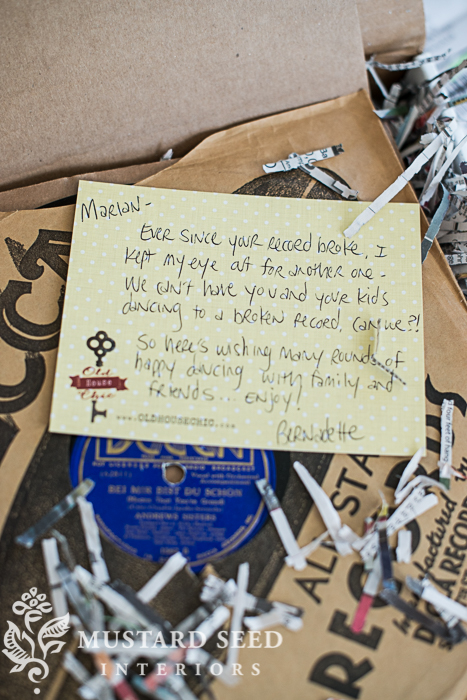 Marian -
Ever since your record broke, I
kept my eye out for another one -
We can't have you and your kids
dancing to a broken record, can we?!
So here's wishing many rounds of
happy dancing with family and
friends... Enjoy!
Bernadette
Old
House
Chic
www.OLDHOUSECHIC.com
DECCA
BEI MIR BIST DU SCHÖN
ANDREWS SISTERS
DECCA RECORDS
MUSTARD SEED
INTERIORS